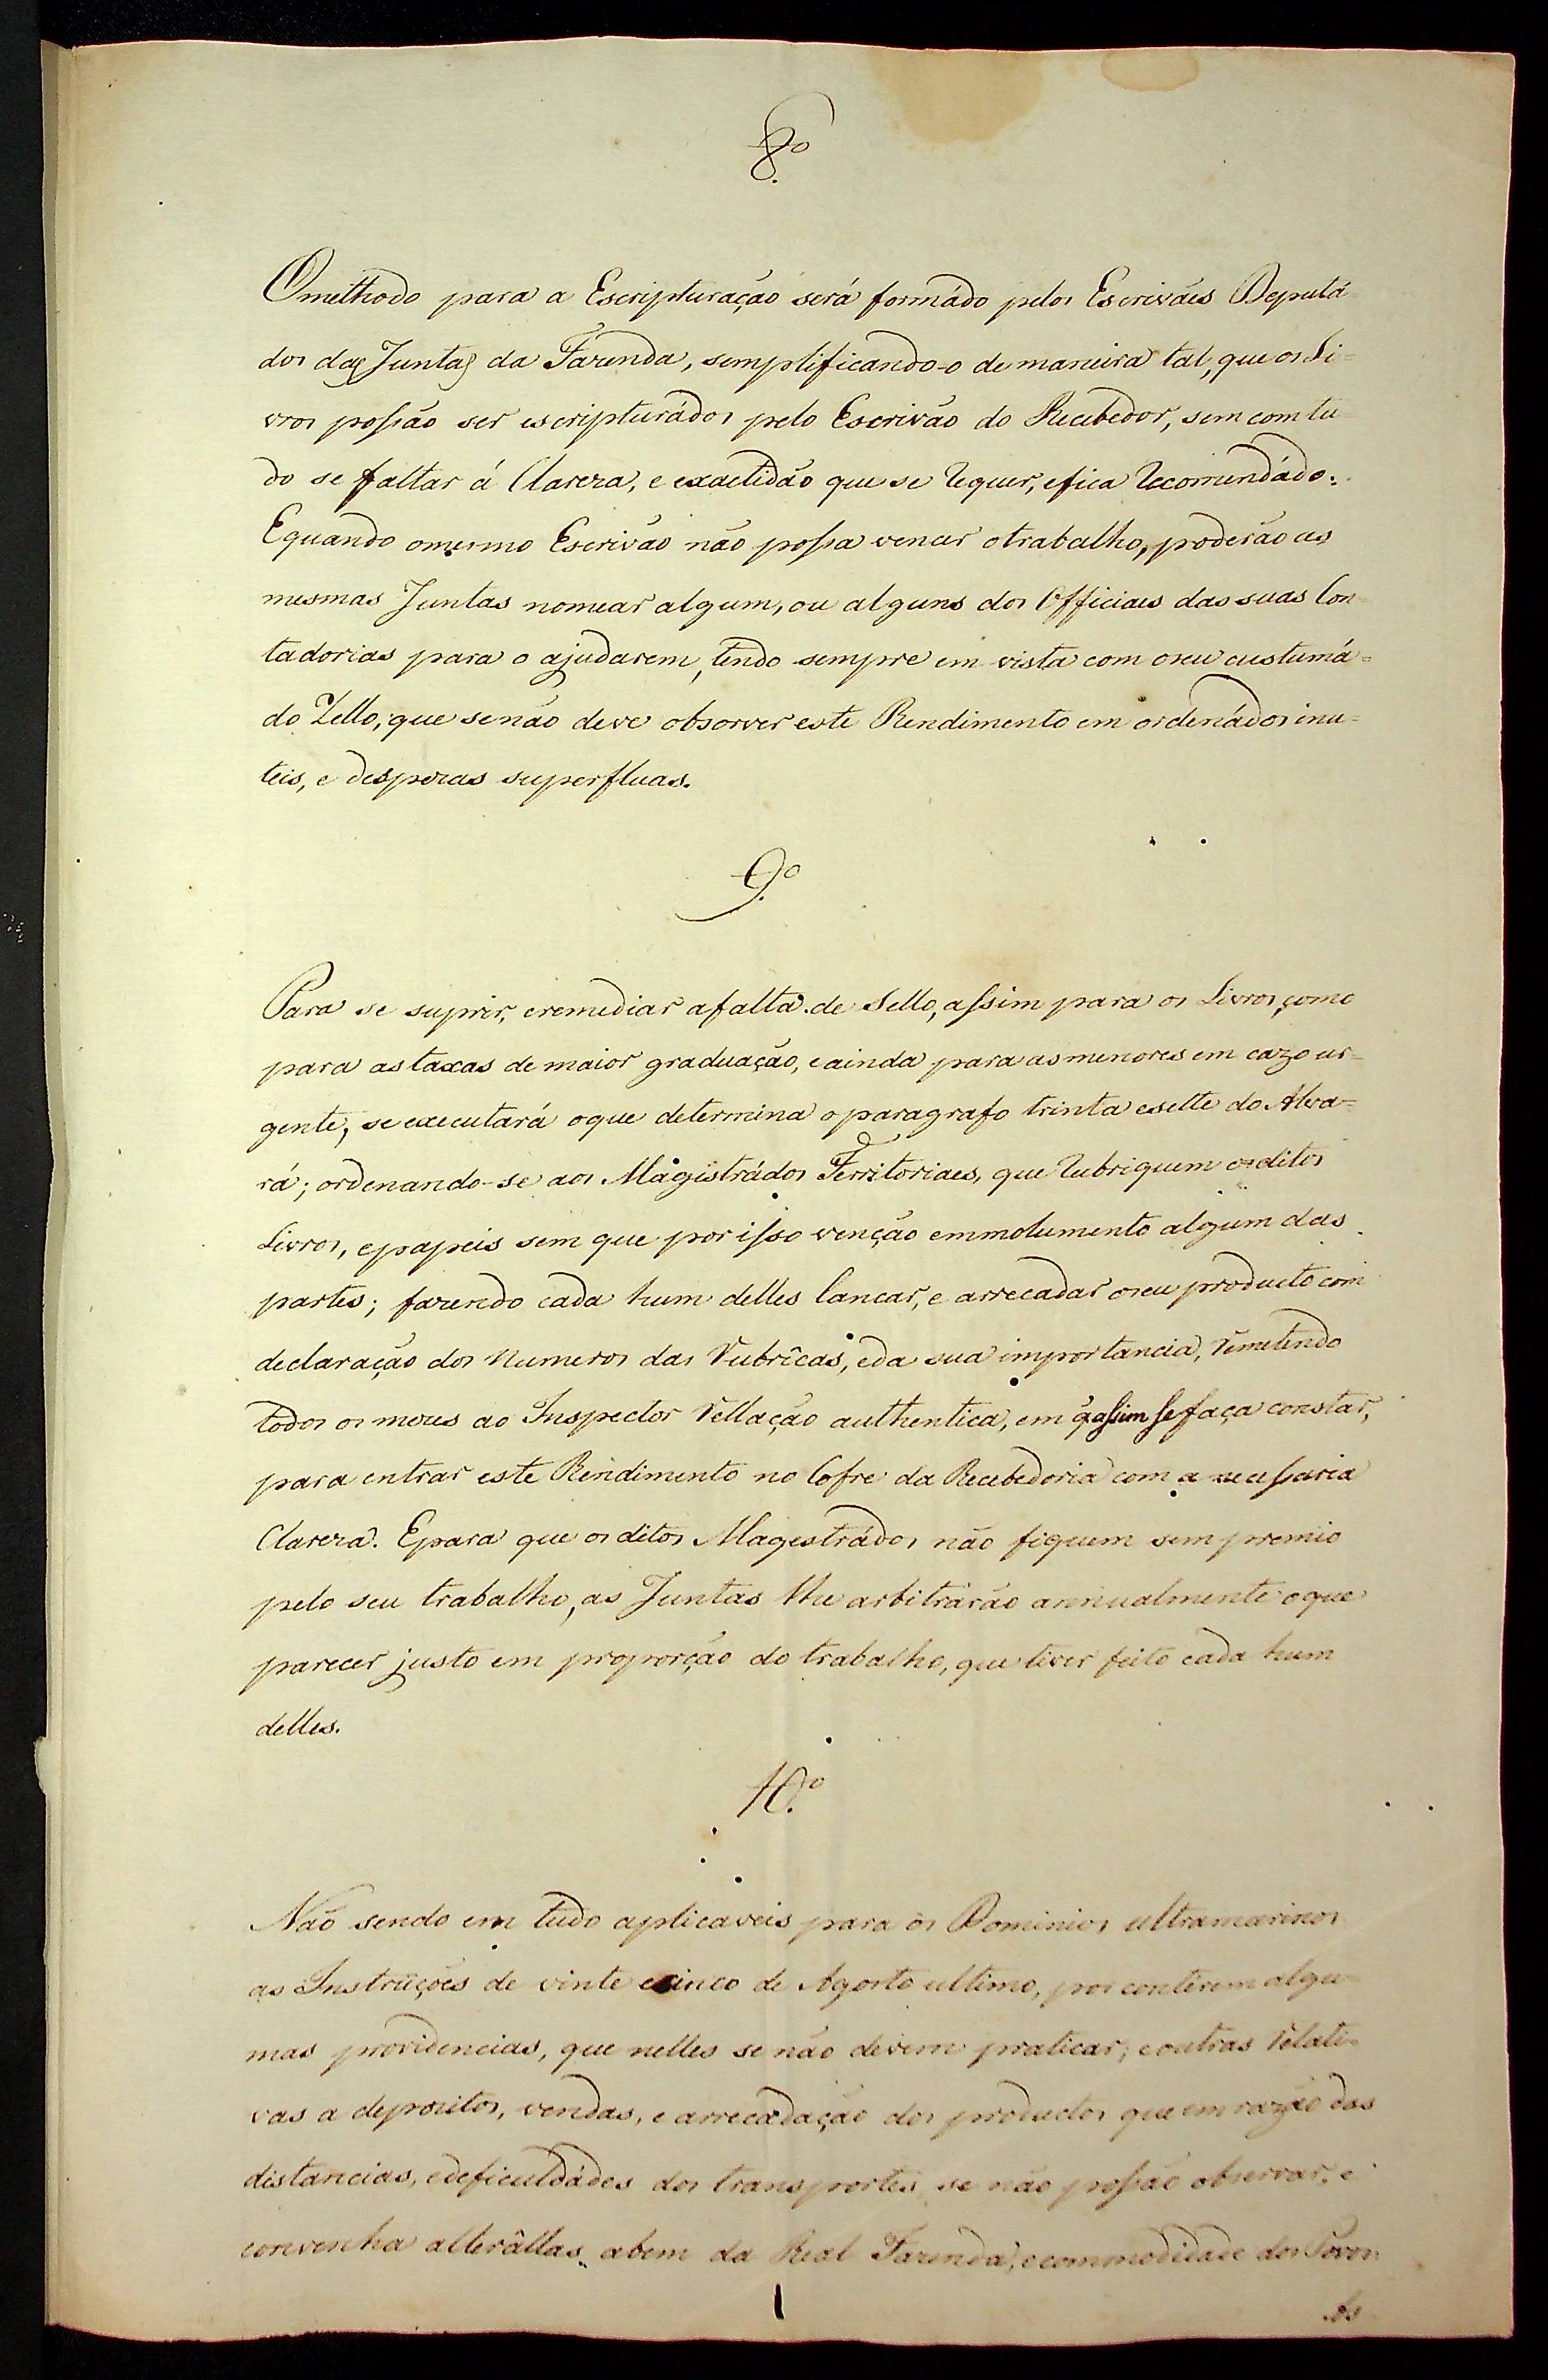 8.º
O methodo para a Escripturação será formádo pelos Escrivães Deputá
dos das Juntas da Fazenda, semplificando-o de maneira tal, que os Li=
vros possão ser escripturádos pelo Escrivão do Recebedor, sem com tu
do se faltar á Clareza, e exactidão que se requer, e fica recomendádo.
E quando o mesmo Escrivão não possa vencer o trabalho, poderão as
mesmas Juntas nomear algum, ou alguns dos Officiaes das suas Con
tadorias para o ajudarem, tendo sempre em vista com o seu custumá=
do Zello, que se não deve obsorver este Rendimento em ordenádos inu=
teis, e despezas superfluas.
9.º
Para se suprir, e remediar a falta de Sello, assim para os Livros, como
para as taxas de maior graduação, e ainda para as menores em cazo ur=
gente, se executará o que determina o paragrafo trinta e sette do Alva=
rá; ordenando-se aos Magistrádos Territoriaes, que rubriquem os ditos
Livros, e papeis sem que por isso venção emmolumento algum das
partes; fazendo cada hum delles lancar, e arrecadar o seu producto com
declaração dos numeros das rubrîcas, e da sua importancia, remetendo
todos os mezes ao Inspector rellação authentica, em q̃ assim se faça constar,
para entrar este Rendimento no Cofre da Recebedoria com a necessaria
Clareza. E para que os ditos Magestrádos não fiquem sem premio
pelo seu trabalho, as Juntas lhe arbitrárão annualmente o que
parecer justo em proporção do trabalho, que tiver feito cada hum
delles.
10.º
Não sendo em tudo aplicaveis para os Dominios ultramarinos
as Instruções de vinte e cinco de Agosto ultimo, por conterem algu=
mas providencias, que nelles se não devem praticar, e outras relati=
vas a depozitos, vendas, e arrecadação dos productos que em razão das
distancias, e deficuldádes dos transportes se não possão observar, e
convenha alterâllas a bem da Real Fazenda, e commodidade dos Povos
As